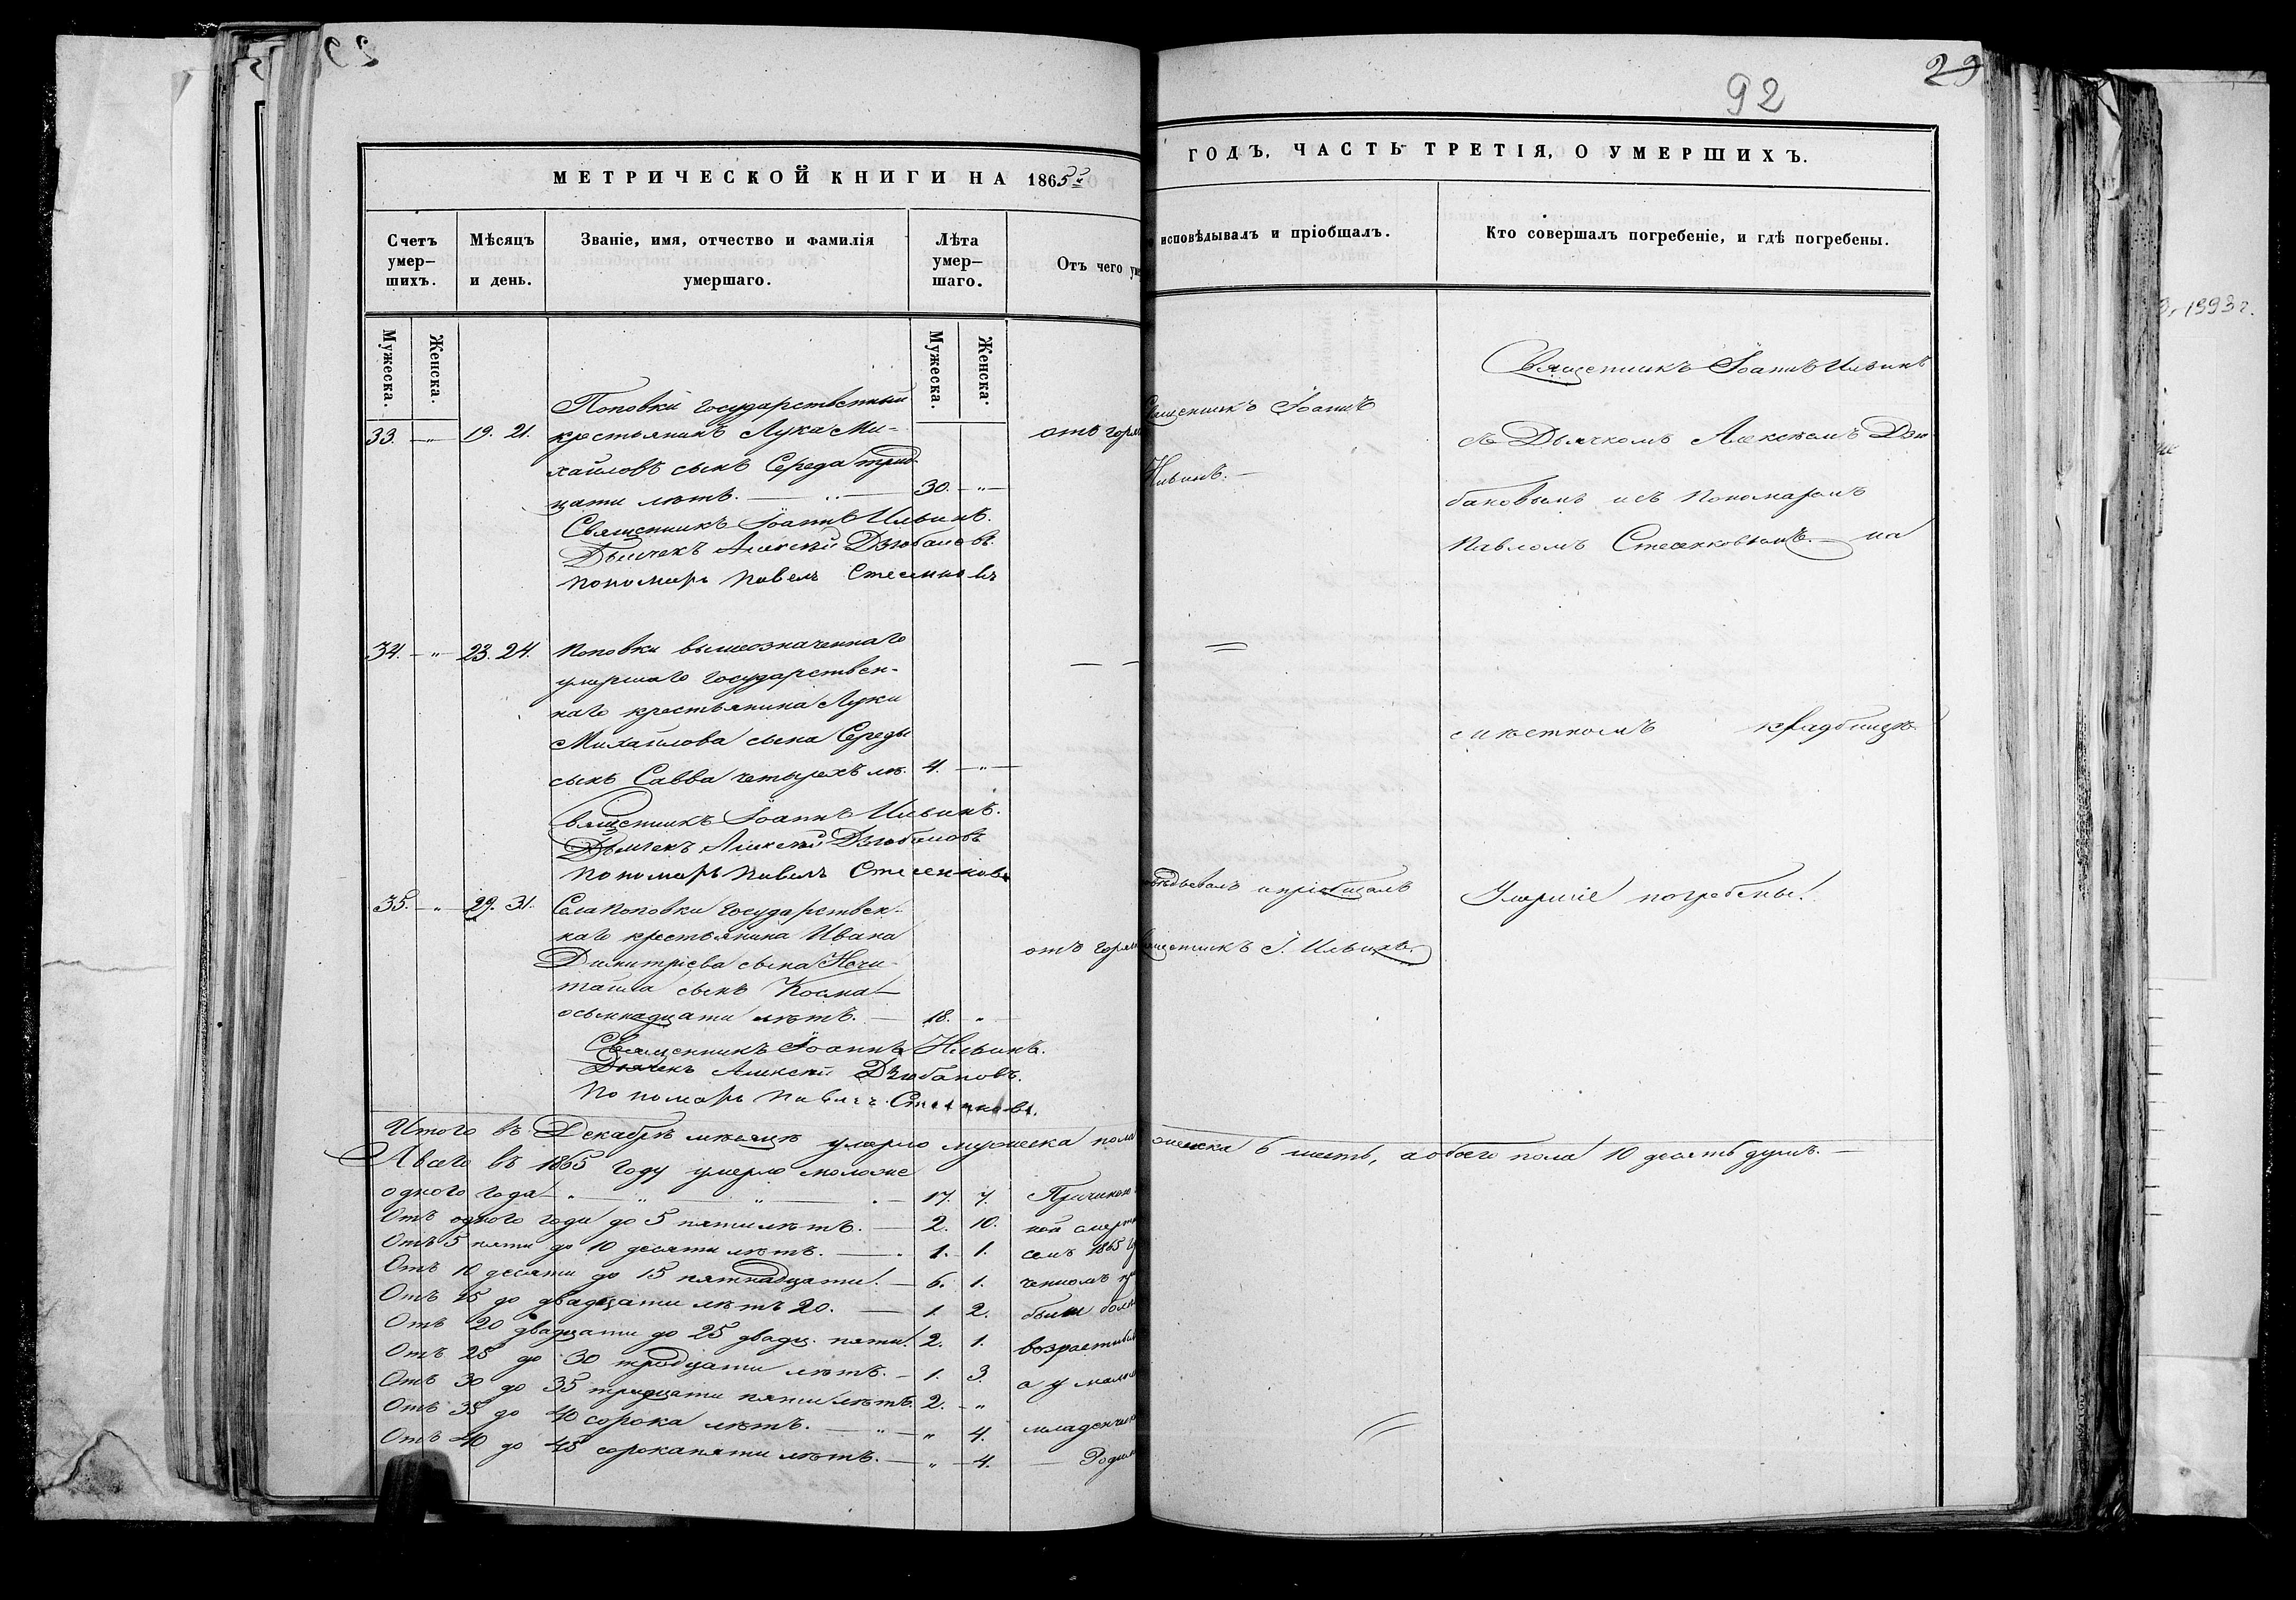 29
92
29
МЕТРИЧЕСКОЙ КНИГИ НА 1865й
ГОДЪ, ЧАСТЬ ТРЕТІЯ, О УМЕРШИХЪ.
Счетъ умер–шихъ.
Мѣсяцъ и день.
Званіе, имя, отчество и фамилія умершаго.
Лѣта умер–шаго.
Отъ чего уме
исповѣдывалъ и пріобщалъ.
Кто совершалъ погребеніе, и гдѣ погребены.
Мужеска.
Женска.
Мужеска.
Женска.
33. — „ — 19. 21.
Поповки государственный
крестьянинъ Лука Ми-
хайловъ сынъ Середа трид-
цати лѣтъ. — 30. — „ —
отъ горя
Священникъ Іоаннъ Ильинъ.
Дьячекъ Алексѣй Дзюбановъ.
Пономарь Павелъ Стесенковъ
Священникъ Іоаннъ
Ильинъ. —
Священникъ Іоаннъ Ильинъ
съ Дьячкомъ Алексѣемъ Дзю-
бановымъ и съ Пономаремъ
Павломъ Стесенковымъ. — на
34. — „ — 23. 24.
Поповки вышеозначеннаго
умершаго государствен-
наго крестьянина Луки
Михайлова сына Середы
сынъ Савва четырехъ лѣ. 4. — „ —
Священникъ Іоаннъ Ильинъ.
Дьячекъ Алексѣй Дзюбановъ
Пономарь Павелъ Стесенковъ
кладбищѣ
35. — „ — 29. 31.
Села Поповки государствен-
наго крестьянина Ивана
Димитріева сына Нечи-
тайла сынъ Косма
осьмнадцати лѣтъ. — 18. „
отъ горя
Священникъ Іоаннъ Ильинъ.
Дьячекъ Алексѣй Дзюбановъ.
Пономарь Павелъ Стесенковъ.
овѣдывалъ и пріобщалъ
ященникъ І. Ильинъ.
Умершіе погребены.
Итого въ Декабрѣ мѣсяцѣ умерло мужеска пола
женска 6 шесть, а обоего пола 10 десять душъ. —
А всего въ 1865 году умерло моложе
одного года — „ — „ — „ — 17. 7. Причиною
Отъ одного года до 5 пяти лѣтъ. — 2. 10. ной смерт
Отъ 5 пяти до 10 десяти лѣтъ. — 1. 1. семъ 1865 г
Отъ 10 десяти до 15 пятнадцати. — 6. 1. ченномъ пр
Отъ 15 до двадцати лѣтъ 20. — 1. 2. были болѣ
Отъ 20 двадцати до 25 двадц. пяти. 2. 1. возрастны
Отъ 25 до 30 тридцати лѣтъ. — 1. 3. а у мало
Отъ 30 до 35 тридцати пяти лѣтъ. 2. „
Отъ 35 до 40 сорока лѣтъ. — „ — „ 4. младенче
Отъ 40 до 45 сорока пяти лѣтъ. — „ — 4. — Родим